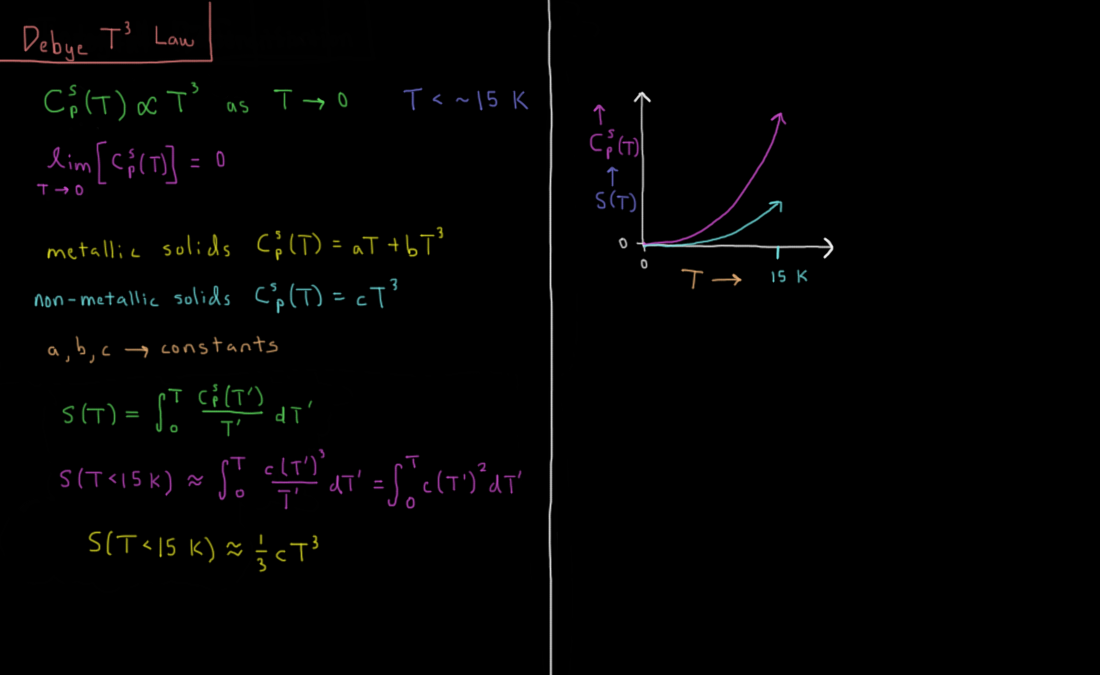 Debye T³ Law
Cₚˢ(T) ∝ T³ as T → 0 T < ~15 K
lim [Cₚˢ(T)] = 0
T → 0
metallic solids Cₚˢ(T) = aT + bT³
non-metallic solids Cₚˢ(T) = cT³
a, b, c → constants
S(T) = ∫₀ᵀ Cₚˢ(T')/T' dT'
S(T<15 K) ≈ ∫₀ᵀ c(T')³/T' dT' = ∫₀ᵀ c(T')² dT'
S(T<15 K) ≈ 1/3 cT³
↑
Cₚˢ(T)
↑
S(T)
0
0
T → 15 K